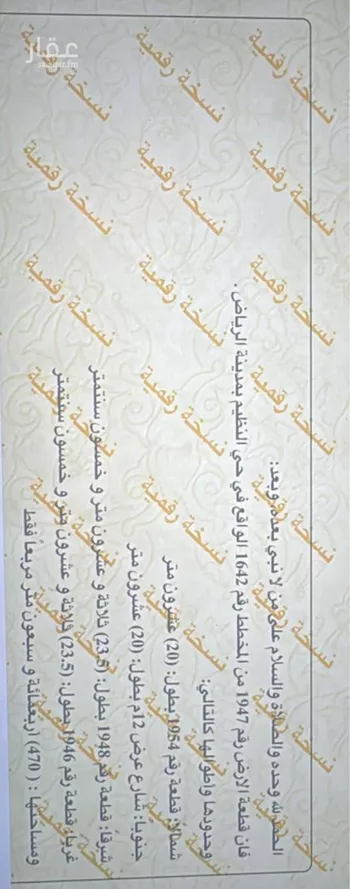 الحمد لله وحده والصلاة والسلام على من لا نبي بعده، وبعد:
فان قطعة الارض رقم 1947 من المخطط رقم 1642 الواقع في حي النظيم بمدينة الرياض .
وحدودها واطوالها كالتالي:
شمالاً: قطعة رقم 1954 بطول: (20) عشرون متر
جنوباً: شارع عرض 12م بطول: (20) عشرون متر
شرقاً: قطعة رقم 1948 بطول: (23.5) ثلاثة و عشرون متر و خمسون سنتمتر
غرباً: قطعة رقم 1946 بطول: (23.5) ثلاثة و عشرون متر و خمسون سنتمتر
ومساحتها : (470) اربعمائة و سبعون متر مربعاً فقط
نسخة رقمية
عقار
aqar.fm